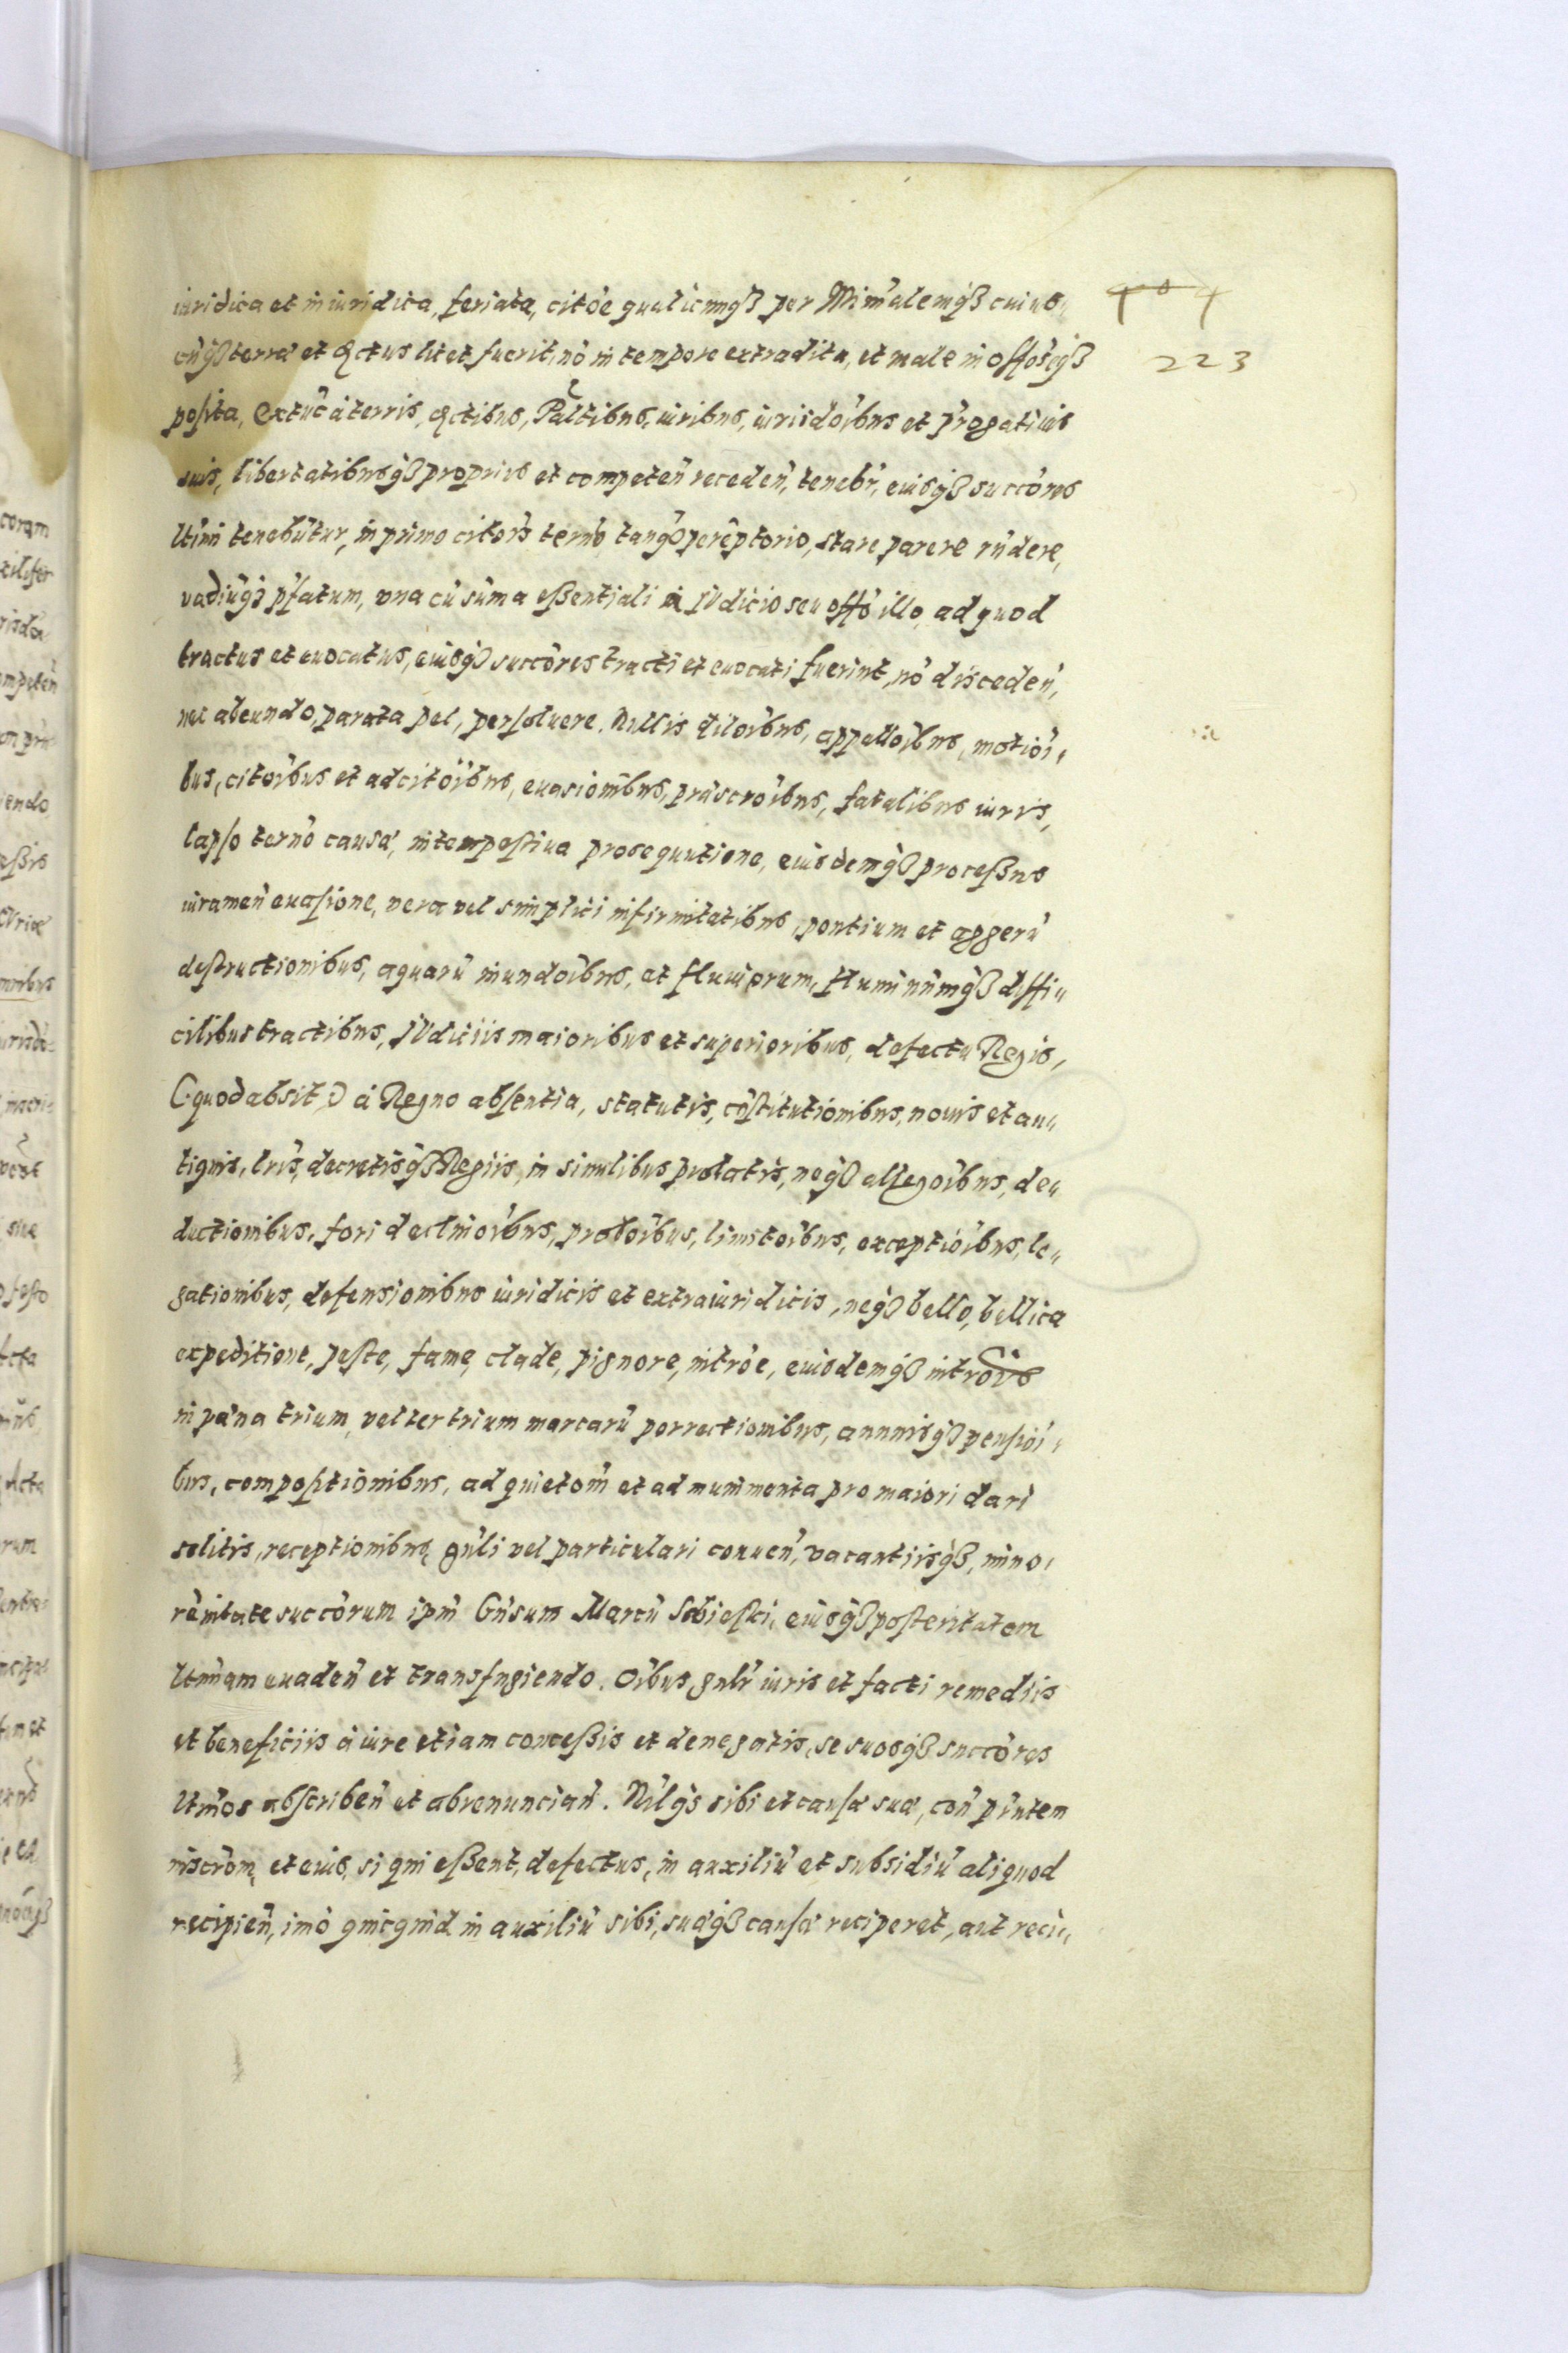 404
iuridica et in iuridica, feriata, citoe qualicunqȝ per Minralemqȝ cuius„
cunqȝ terrae et Dctus licet fuerit, nō in tempore extradita, et male in offoseqȝ
223
posita, Extūc à terris, Dctibus, Palticibus, iuribus, iurisdoibus et prōgatiuis
suis, libertatibusqȝ propriis et competen̄ receden̄, tenebr̄, eiusqȝ succōres
ltimi tenebūtur, in primo citoīs termō tanqȝ perēptorio, stare parere rn̄dere,
vadiūqȝ pr̄fatum, vna cū sūma eßentiali in Iudicio seu offō illo, ad quod
tractus et euocatus, eiusqȝ succōres tracti et euocati fuerint, nō disceden̄,
nec abeundo, parata pec, persoluere. Nullis diloībus, appelloībus, motioī„
bus, citoībus et adcitoībus, euasionibus, praescroībus, fatalibus iuris,
lapso termō causae, intempestiua prosequutione, eiusdemqȝ proceßus
iuramen̄ euasione, vera vel simplici infirmitatibus, pontium et aggerū
destructionibus, aquarū inundoībus, et fluuiorum, fluminūmqȝ diffi„
cilibus tractibus, Iudiciis maioribus et superioribus, defectu Regis,
(quod absit) à Regno absentia, statutis, cōstitutionibus, nouis et an„
tiquis, lrīs, decretisqȝ Regiis, in similibus prolatis, neqȝ allegoībus, de„
ductionibus, fori declinoībus, proboībus, limitoībus, exceptioībus, le„
gationibus, defensionibus iuridicis et extraiuridicis, neqȝ bello, bellica
expeditione, peste, fame, clade, pignore, intrōe, eiusdemqȝ introīs
in paena trium, vel ter trium marcarū porrectionibus, annuisqȝ pensioī„
bus, compositionibus, ad quietom̄ et ad munimenta pro maiori dari
solitis, receptionibus, gn̄li vel particulari conuen̄, vacantiisqȝ, mino„
rēnitate succōrum ipm̄ Gn̄sum Marcū Sobieski, eiusqȝ posteritatem
ltimam euaden̄ et transfugiendo. Oībus gnlr̄ iuris et facti remediis
et beneficiis à iure etiam conceßis et denegatis, se suosqȝ succōres
ltimos abscriben̄ et abrenuncian̄. Nilqȝ sibi et causae suae, con̄ prn̄tem
inscrōm, et eius, si qui eßent, defectus, in auxiliū et subsidiū aliquod
recipien̄, imò quicquid in auxiliū sibi, suaeqȝ causae reciperet, aut reci„